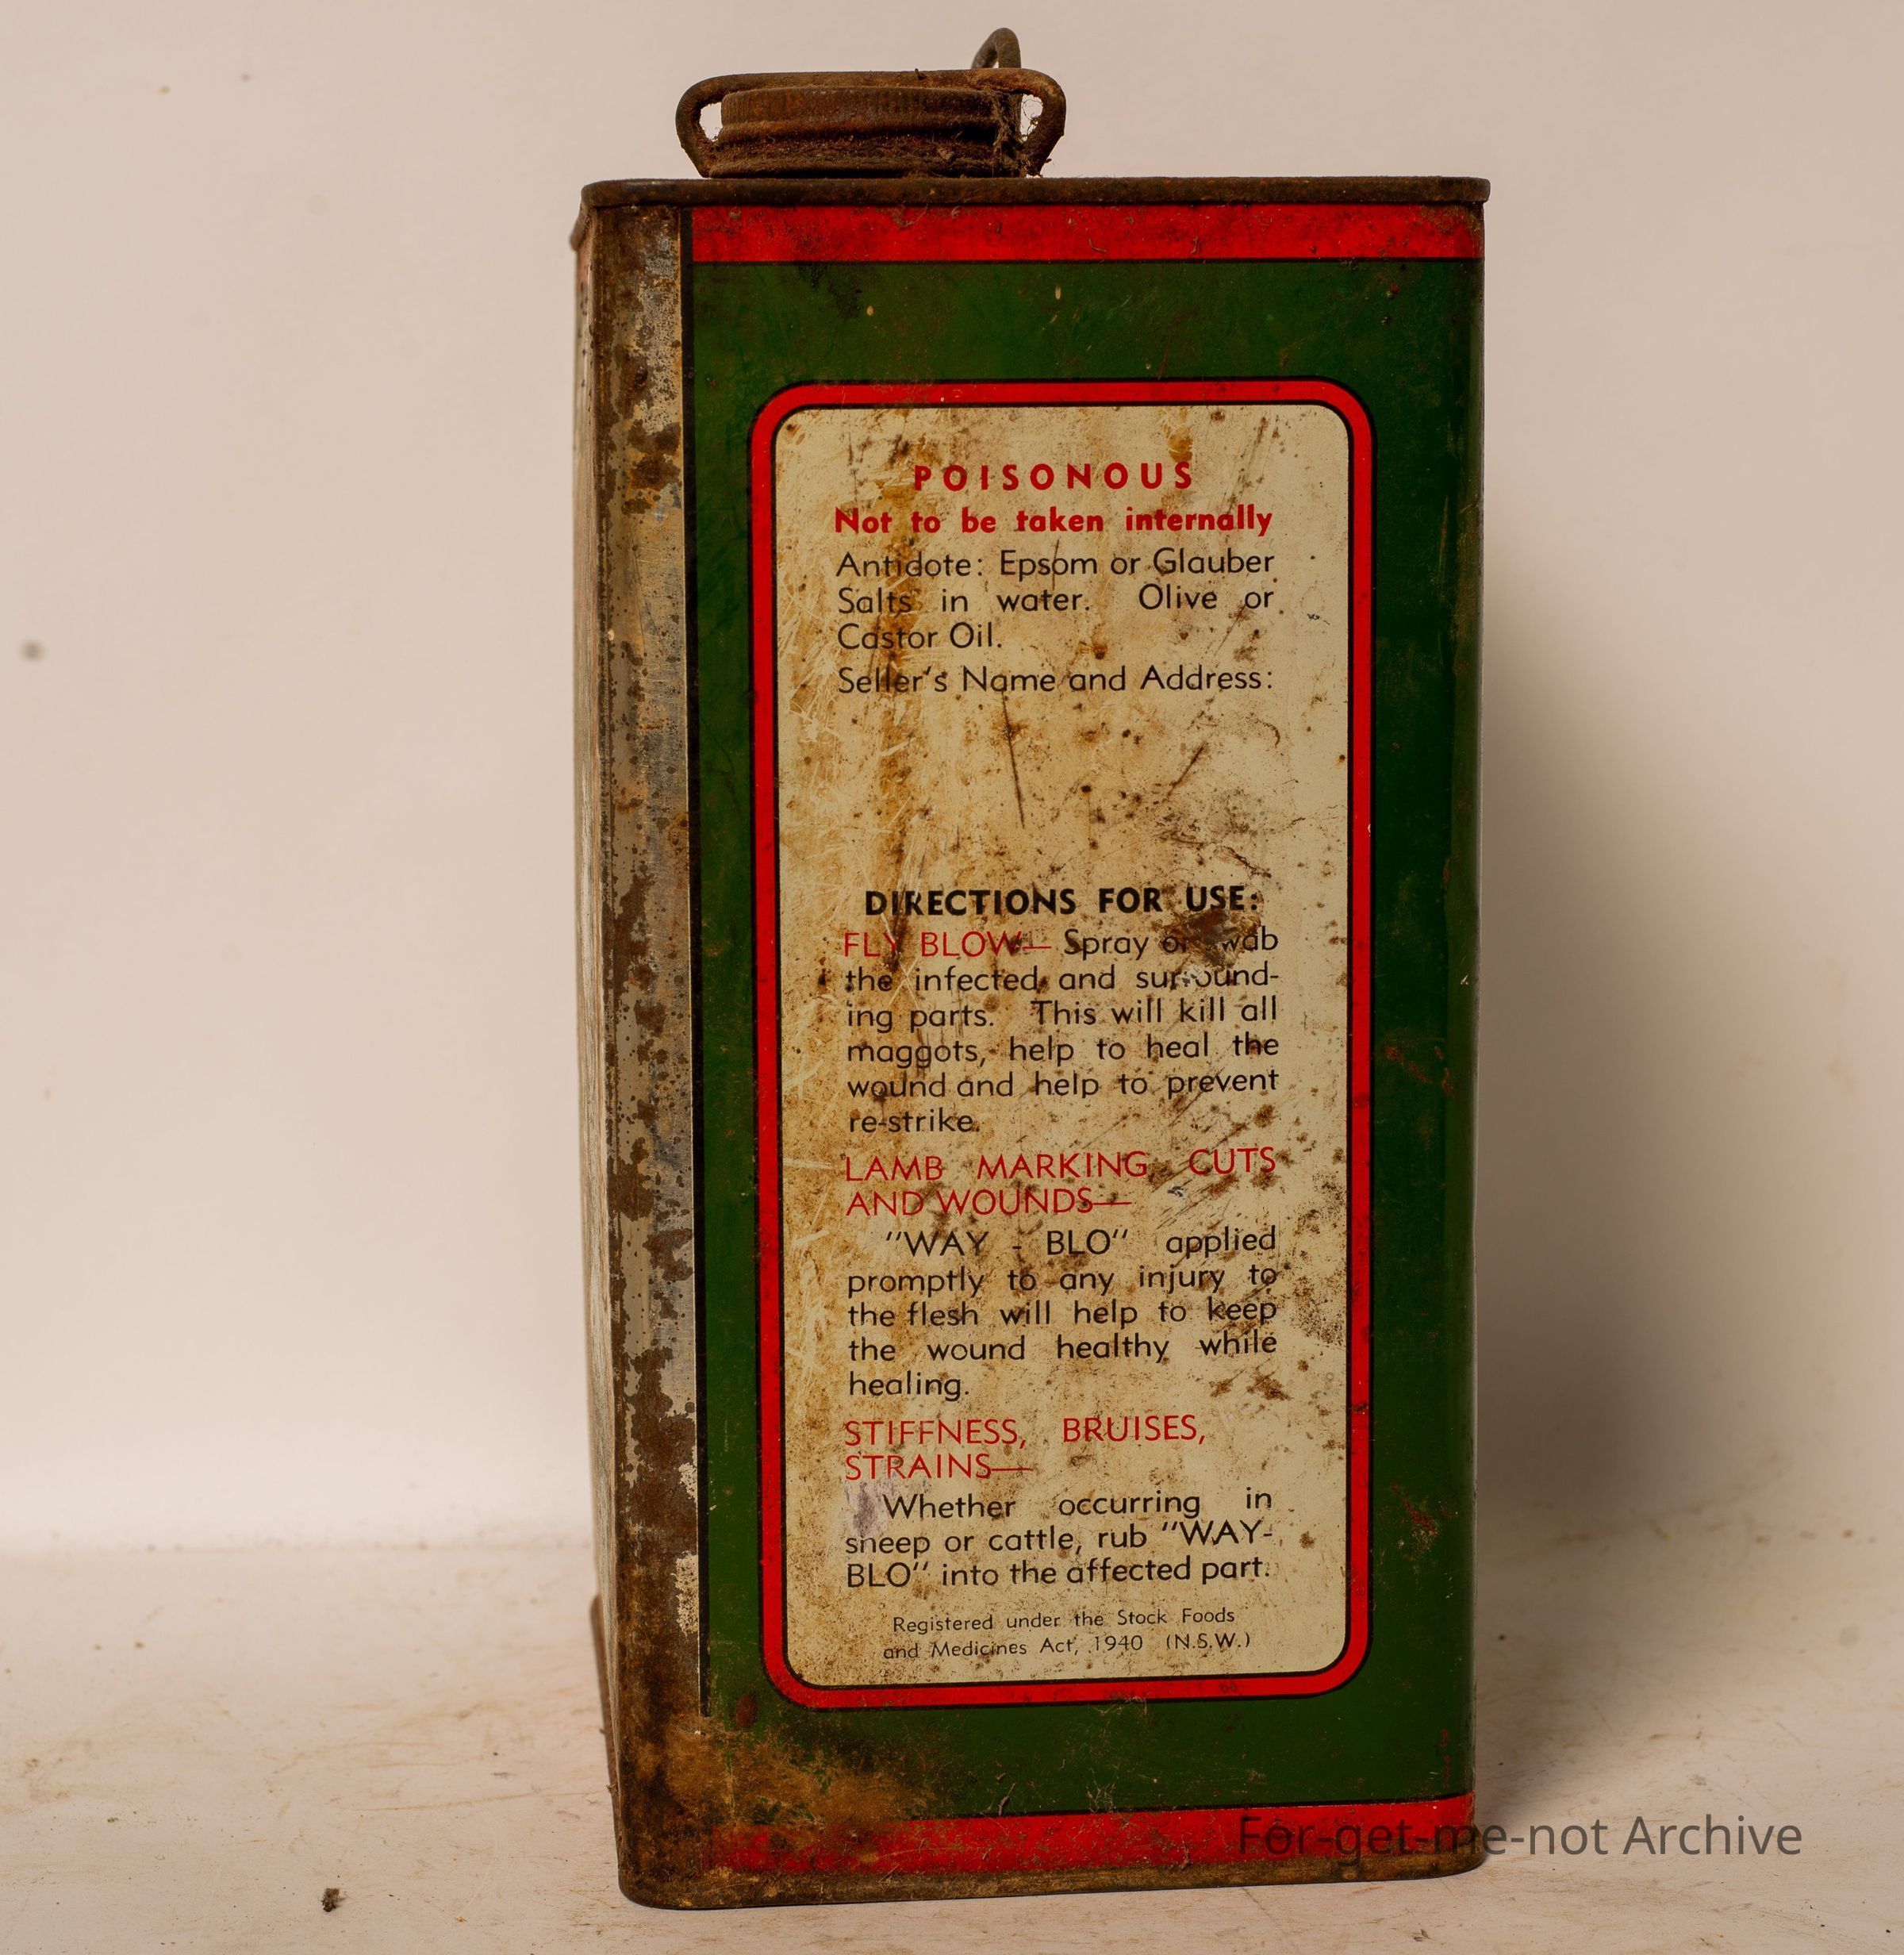 POISONOUS
Not to be taken internally
Antidote: Epsom or Glauber
Salts in water. Olive or
Castor Oil.
Seller's Name and Address:
DIRECTIONS FOR USE:
FLY BLOW— Spray or swab
the infected and surround-
ing parts. This will kill all
maggots, help to heal the
wound and help to prevent
re-strike.
LAMB MARKING CUTS
AND WOUNDS—
"WAY - BLO" applied
promptly to any injury to
the flesh will help to keep
the wound healthy while
healing.
STIFFNESS, BRUISES,
STRAINS—
Whether occurring in
sheep or cattle, rub "WAY-
BLO" into the affected part.
Registered under the Stock Foods
and Medicines Act, 1940 (N.S.W.)
For-get-me-not Archive